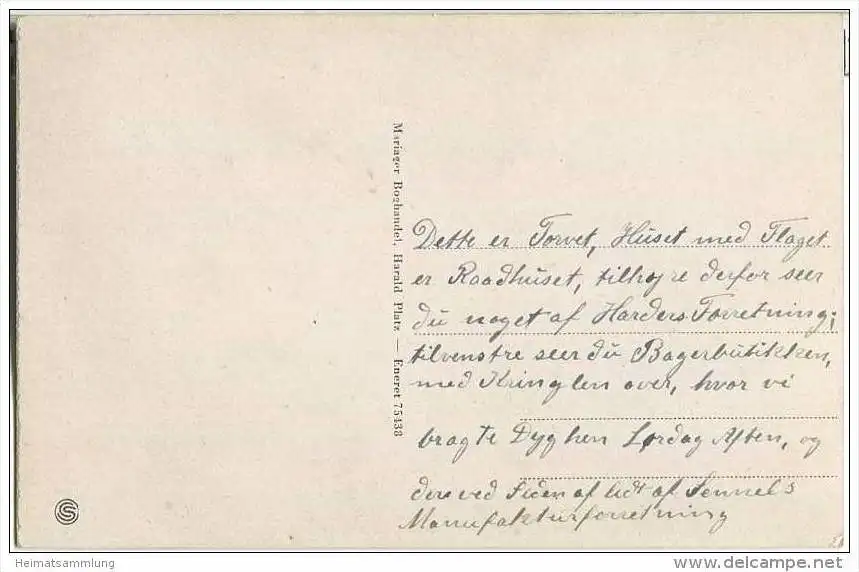 Mariager Boghandel, Harald Platz — Eneret 75438
Dette er Torvet, Huset med Flaget
er Raadhuset, tilhøjre derfor seer
du noget af Harders Forretning;
tilvenstre seer du Bagerbutikken,
med Kringlen over, hvor vi
bragte Dyg hen Lørdag Aften, og
der ved Siden af lidt af Sennels
Manufakturforretning
S
Heimatsammlung
www.delcampe.net